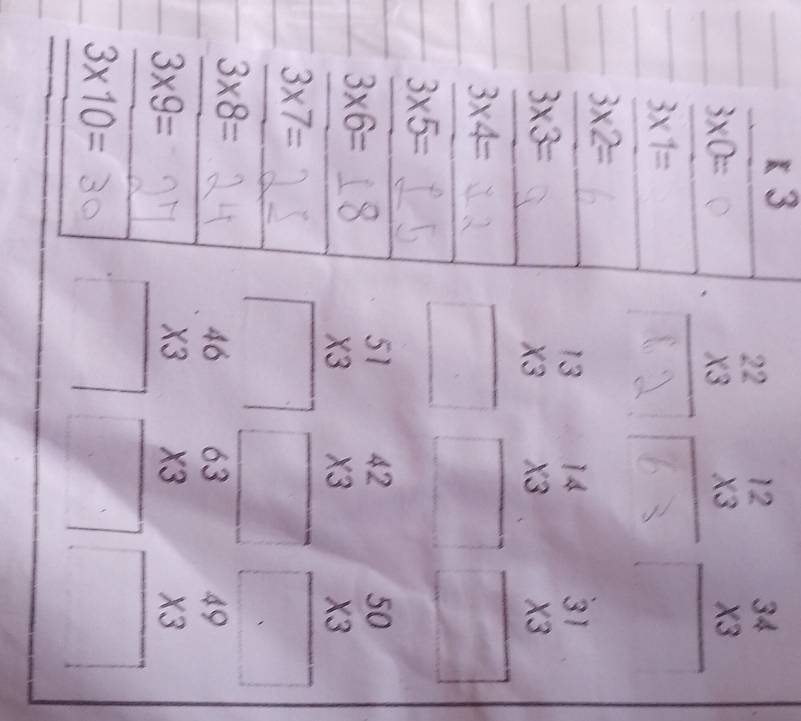 x 3
3x0= 0
3x1=
3x2= 6
3x3= 9
3x4= 12
3x5= 15
3x6= 18
3x7=
3x8= 24
3x9= 27
3x10= 30
22 12 34
X3 X3 X3
13 14 31
X3 X3 X3
51 42 50
X3 X3 X3
46 63 49
X3 X3 X3